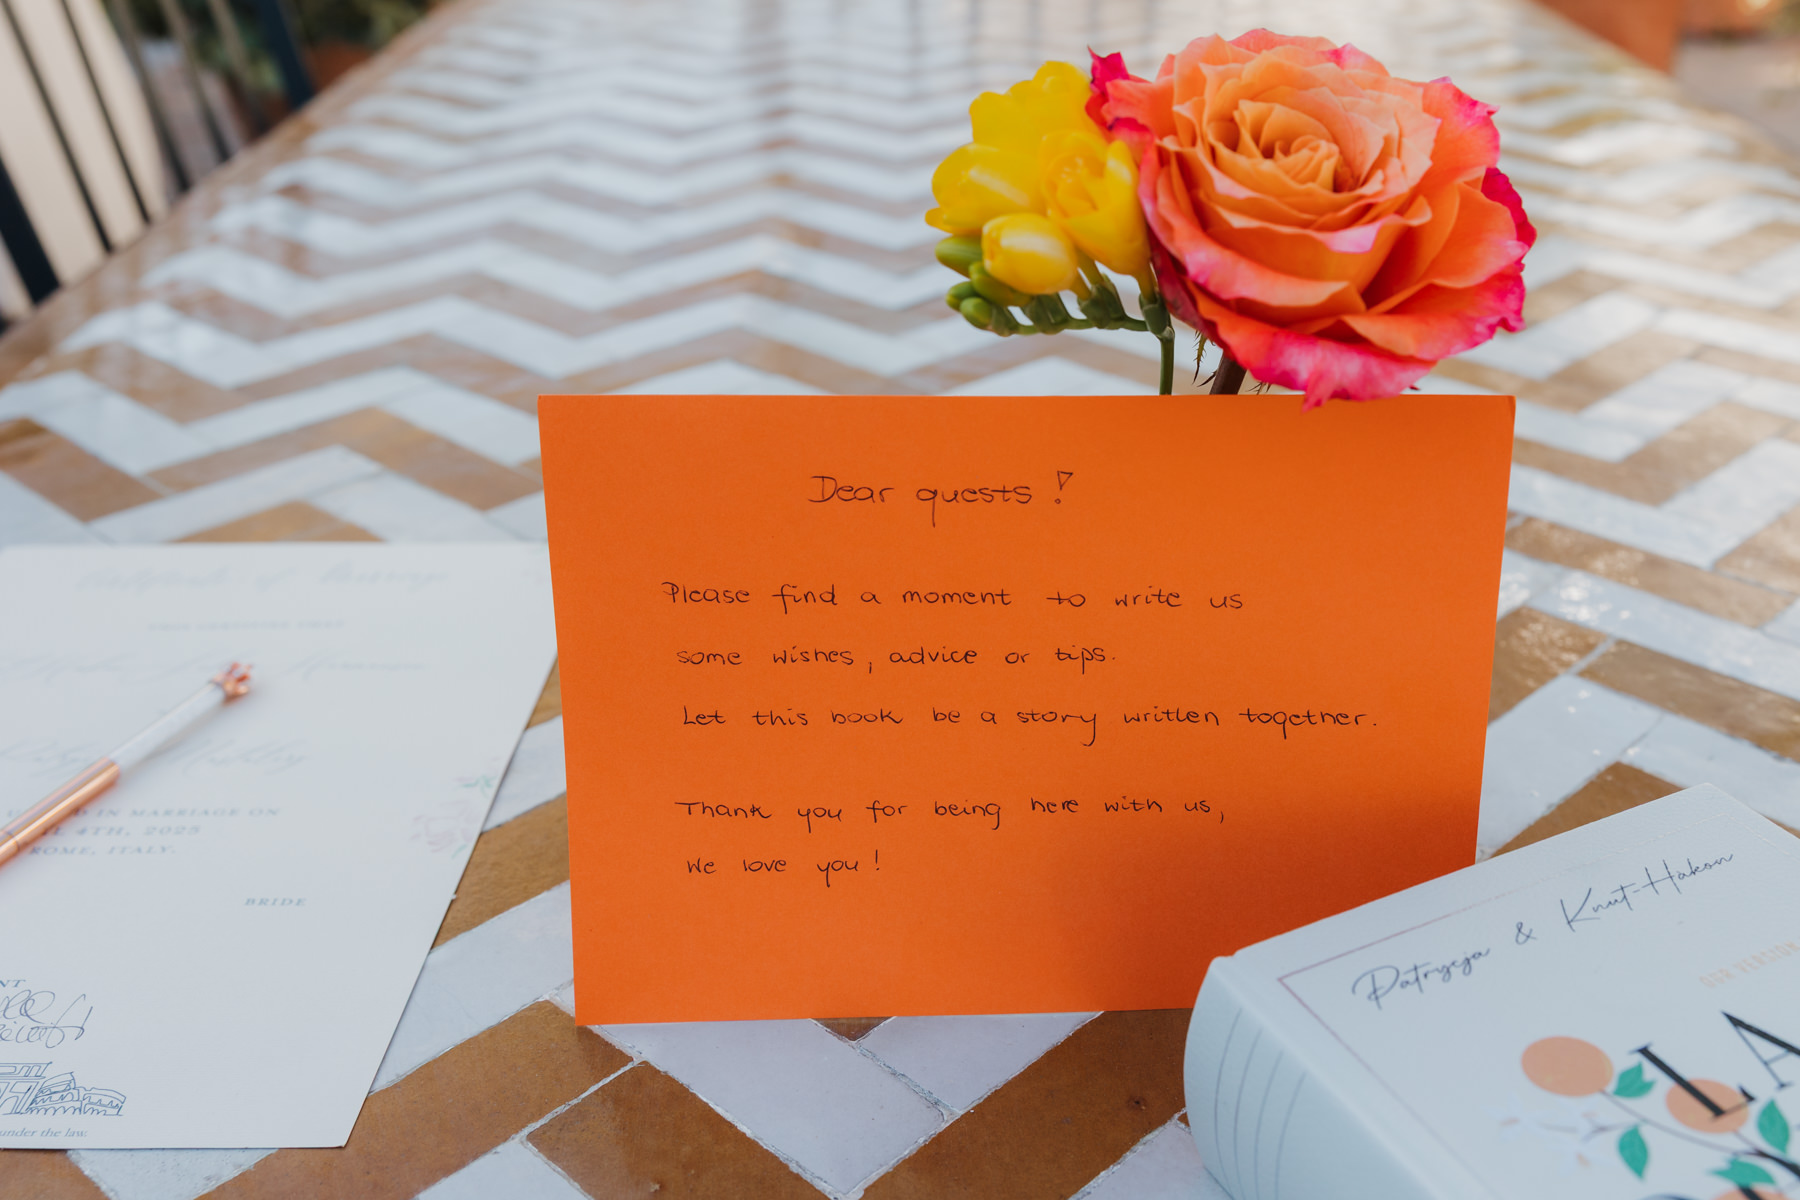 Dear guests!
Please find a moment to write us
some wishes, advice or tips.
Let this book be a story written together.
Thank you for being here with us,
We love you!
IN MARRIAGE ON
4TH, 2025
ROME, ITALY.
BRIDE
under the law.
Patrycja & Knut-Håkon
OUR VERSION
LA